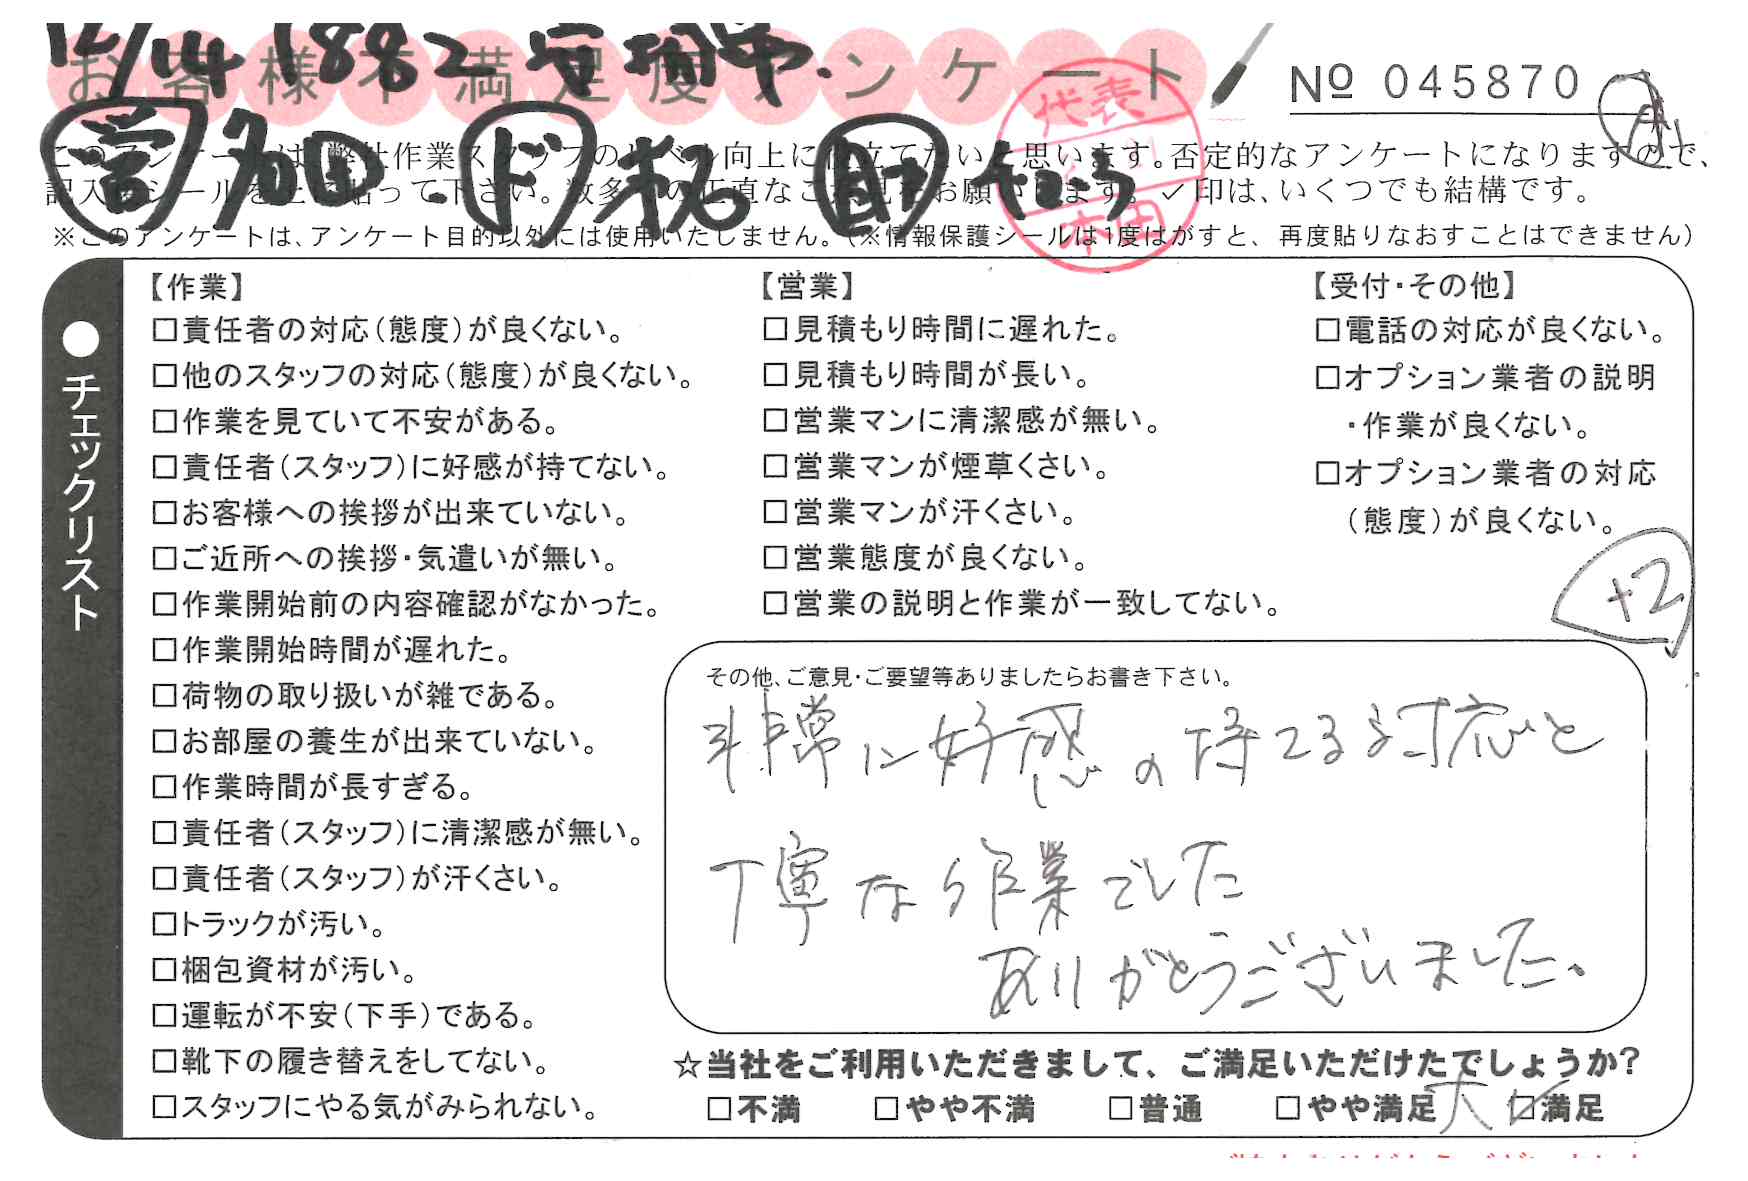 12/14 1882 安珊中.
お客様不満足度アンケート
No 045870
営 多田 ド 拓 助
代表
本田
このアンケートは、弊社作業スタッフのレベル向上に役立てたいと思います。否定的なアンケートになりますので、
記入後シールを上に貼って下さい。数多くの正直なご意見をお願いします。✓印は、いくつでも結構です。
※このアンケートは、アンケート目的以外には使用いたしません。(※情報保護シールは1度はがすと、再度貼りなおすことはできません)
●チェックリスト
【作業】
□責任者の対応(態度)が良くない。
□他のスタッフの対応(態度)が良くない。
□作業を見ていて不安がある。
□責任者(スタッフ)に好感が持てない。
□お客様への挨拶が出来ていない。
□ご近所への挨拶・気遣いが無い。
□作業開始前の内容確認がなかった。
□作業開始時間が遅れた。
□荷物の取り扱いが雑である。
□お部屋の養生が出来ていない。
□作業時間が長すぎる。
□責任者(スタッフ)に清潔感が無い。
□責任者(スタッフ)が汗くさい。
□トラックが汚い。
□梱包資材が汚い。
□運転が不安(下手)である。
□靴下の履き替えをしてない。
□スタッフにやる気がみられない。
【営業】
□見積もり時間に遅れた。
□見積もり時間が長い。
□営業マンに清潔感が無い。
□営業マンが煙草くさい。
□営業マンが汗くさい。
□営業態度が良くない。
□営業の説明と作業が一致してない。
【受付・その他】
□電話の対応が良くない。
□オプション業者の説明
・作業が良くない。
□オプション業者の対応
(態度)が良くない。
+2
その他、ご意見・ご要望等ありましたらお書き下さい。
非常に好感の持てる対応と
丁寧な作業でした
ありがとうございました。
☆当社をご利用いただきまして、ご満足いただけたでしょうか?
□不満 □やや不満 □普通 □やや満足 大 ☑満足